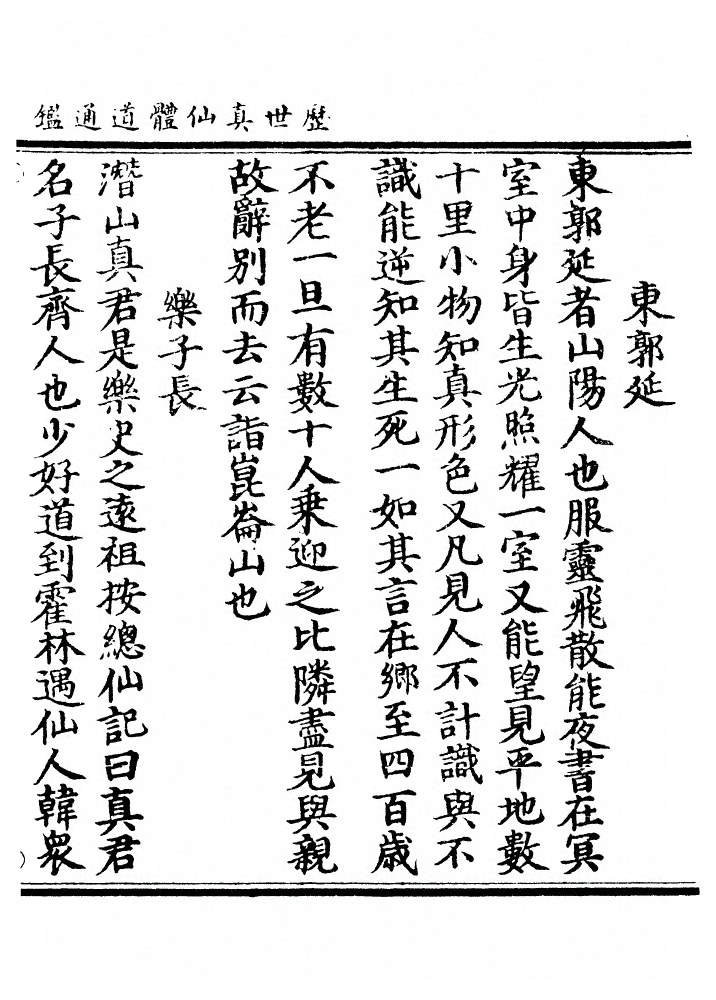 歷世真仙體道通鑑
東郭延
東郭延者山陽人也服靈飛散能夜書在冥
室中身皆生光照耀一室又能望見平地數
十里小物知真形色又凡見人不計識與不
識能逆知其生死一如其言在鄉至四百歲
不老一旦有數十人乗迎之比隣盡見與親
故辭別而去云詣崑崙山也
樂子長
潛山真君是樂史之遠祖按總仙記曰真君
名子長齊人也少好道到霍林遇仙人韓眾